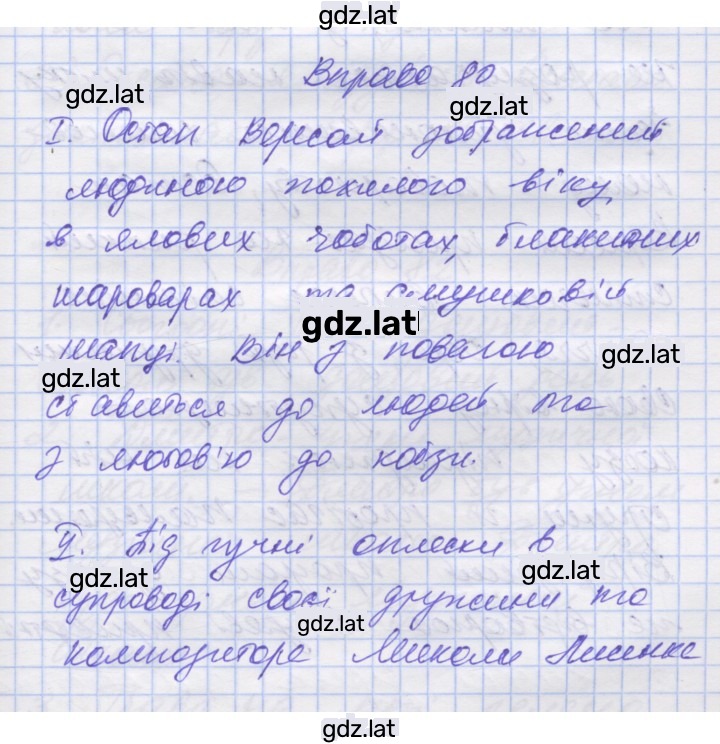 gdz.lat
Вправа 80
gdz.lat
gdz.lat
I. Остап Вересай зображений
людиною похилого віку
в ялових чоботах, блакитних
шароварах та смушковій
gdz.lat
шапці. Він з повагою
gdz.lat
gdz.lat
ставиться до людей та
з любов'ю до кобзи.
II. Під гучні оплески в
gdz.lat
gdz.lat
супроводі своєї дружини та
gdz.lat
композитора Миколи Лисенка
gdz.lat